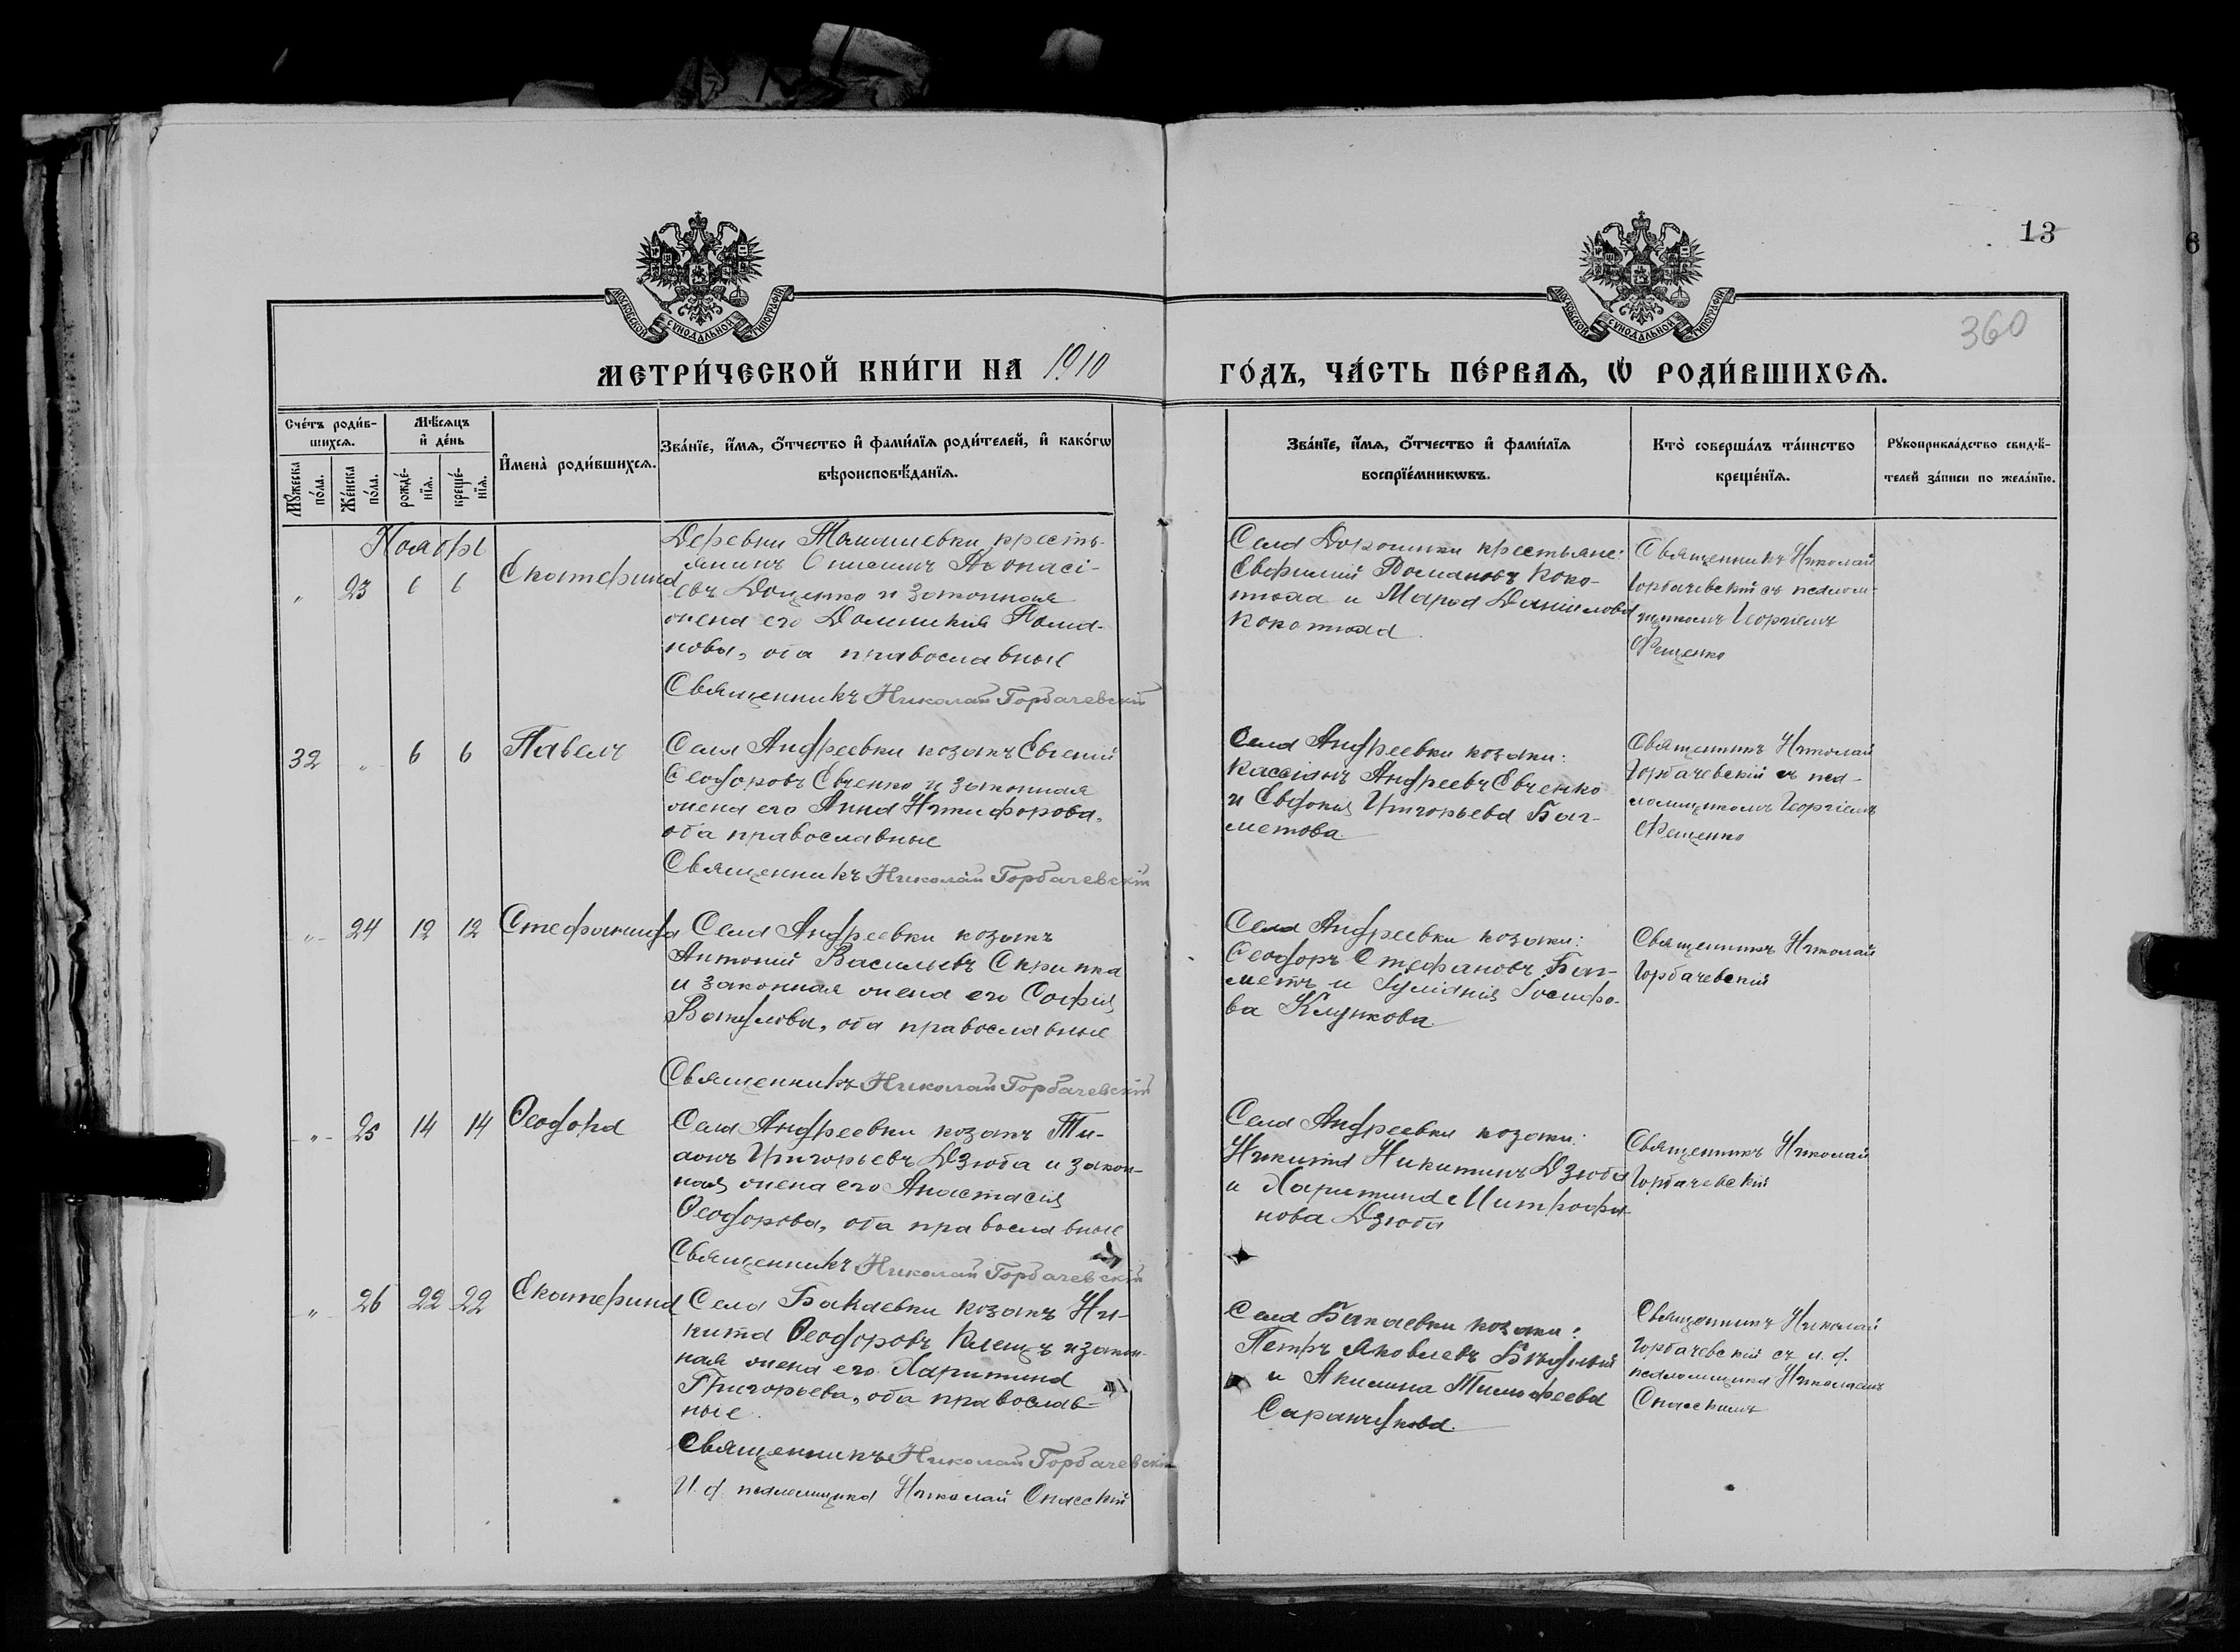 13
6
МОСКОВСКОЙ СѴНОДАЛЬНОЙ ТИПОГРАФІИ
МОСКОВСКОЙ СѴНОДАЛЬНОЙ ТИПОГРАФІИ
360
МЕТРИ́ЧЕСКОЙ КНИ́ГИ НА 1910
ГО́ДЪ, ЧА́СТЬ ПЕ́РВАѦ, Ѡ҆ РОДИ́ВШИХСѦ.
Сче́тъ роди́в-
шихсѧ.
Мꙋ́жеска
по́ла.
Же́нска
по́ла.
Мѣ́сѧцъ
и҆ де́нь
рожде́-
нїѧ.
креще́-
нїѧ.
И҆мена̀ роди́вшихсѧ.
Зва́нїе, и҆́мѧ, ѻ҆́тчество и҆ фами́лїѧ роди́телей, и҆ како́гѡ
вѣроисповѣ́данїѧ.
Зва́нїе, и҆́мѧ, ѻ҆́тчество и҆ фами́лїѧ
воспрїе́мникѡвъ.
Кто̀ соверша́лъ та́инство
креще́нїѧ.
Рꙋкоприкла́дство свидѣ́-
телей за́писи по жела́нїю.
Ноябрь
" 23 6 6 Екатерина
Деревни крестъ-
янинъ Онисимъ Аѳонасі-
евъ Доценко и законная
жена его Домникія Рома-
нова, оба православные
Священникъ Николай Горбачевскій
Села Дорошивки крестьяне:
Евфимій Романовъ Коко-
тюха и Марѳа Даниилова
Кокотюха
Священникъ Николай
Горбачевскій съ псалом-
щикомъ Георгіемъ
Фещенко
32 " 6 6 Павелъ
Села Андреевки козакъ Евгеній
Ѳеодоровъ Евченко и законная
жена его Анна Никифорова,
оба православные
Священникъ Николай Горбачевскій
Села Андреевки козаки:
Кассіанъ Андреевъ Евченко
и Евдокія Григорьева Баг-
метова
Священникъ Николай
Горбачевскій съ пса-
ломщикомъ Георгіемъ
Фещенко
" 24 12 12 Стефанида
Села Андреевки козакъ
Антоній Васильевъ Скрипка
и законная жена его Софія
оба православные
Священникъ Николай Горбачевскій
Села Андреевки козаки:
Ѳеодоръ Стефановъ Баг-
метъ и Іуліанія Іосифо-
ва
Священникъ Николай
Горбачевскій
" 25 14 14 Ѳеодора
Села Андреевки козакъ Ти-
Григорьевъ Дзюба и закон-
ная жена его Анастасія
Ѳеодорова, оба православные
Священникъ Николай Горбачевскій
Села Андреевки козаки:
Никита Никитинъ Дзюба
и Харитина Митрофа-
нова Дзюба
Священникъ Николай
Горбачевскій
" 26 22 22 Екатерина
Села Бакаевки козакъ Ни-
кита Ѳеодоровъ Клещъ и закон-
ная жена его Харитина
Григорьева, оба православ-
ные.
Священникъ Николай Горбачевскій
И. д. псаломщика Николай Спасскій
Села Бакаевки козаки:
Петръ Яковлевъ
и Акилина Тимофеева
Священникъ Николай
Горбачевскій съ и. д.
псаломщика Николаемъ
Спасскимъ